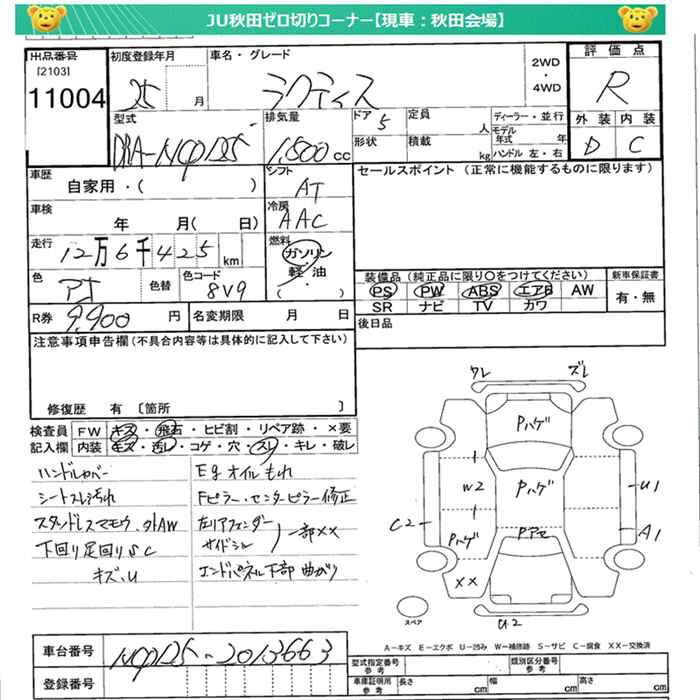 JU秋田ゼロ切りコーナー【現車：秋田会場】
出品番号
[2103]
11004
初度登録年月
25 月
車名・グレード
ラクティス
2WD
・
4WD
評価点
R
外装 内装
D C
型式
DBA-NCP125
排気量
1,500 cc
ドア 5
形状
定員 人
積載 kg
ディーラー・並行
モデル年式 年
ハンドル 左・右
車歴
自家用・( )
シフト
AT
セールスポイント (正常に機能するものに限ります)
車検
年 月( 日)
冷房
AAC
走行
12万6千425km
燃料
ガソリン
・
軽・油
( )
色
色替
色コード
8V9
装備品 (純正品に限り〇をつけてください)
PS PW ABS エアB AW
SR ナビ TV カワ
新車保証書
有・無
R券 9,900 円
名変期限 月 日
後日品
注意事項申告欄 (不具合内容等は具体的に記入して下さい)
修復歴 有 〔箇所 〕
検査員 FW キズ・飛石・ヒビ割・リペア跡・×要
記入欄 内装 キズ・汚レ・コゲ・穴・スレ・キレ・破レ
ハンドルカバー
シートスレ汚れ
下回り足回りSC
キズ、U
Egオイルもれ
Fピラー・センターピラー修正
左リアフェンダー
サイドシル
一部××
エンドパネル下部曲がり
ワレ ズレ
Pハゲ
W2
Pハゲ
U1
C2
A1
Pハゲ
Pアセ
××
U2
スペア
A－キズ E－エクボ U－凹み W－補修跡 S－サビ C－腐食 XX－交換済
車台番号 NCP125-2013663
登録番号
型式指定番号
参考
類別区分番号
参考
車庫証明用
参考
長さ cm
幅 cm
高さ cm